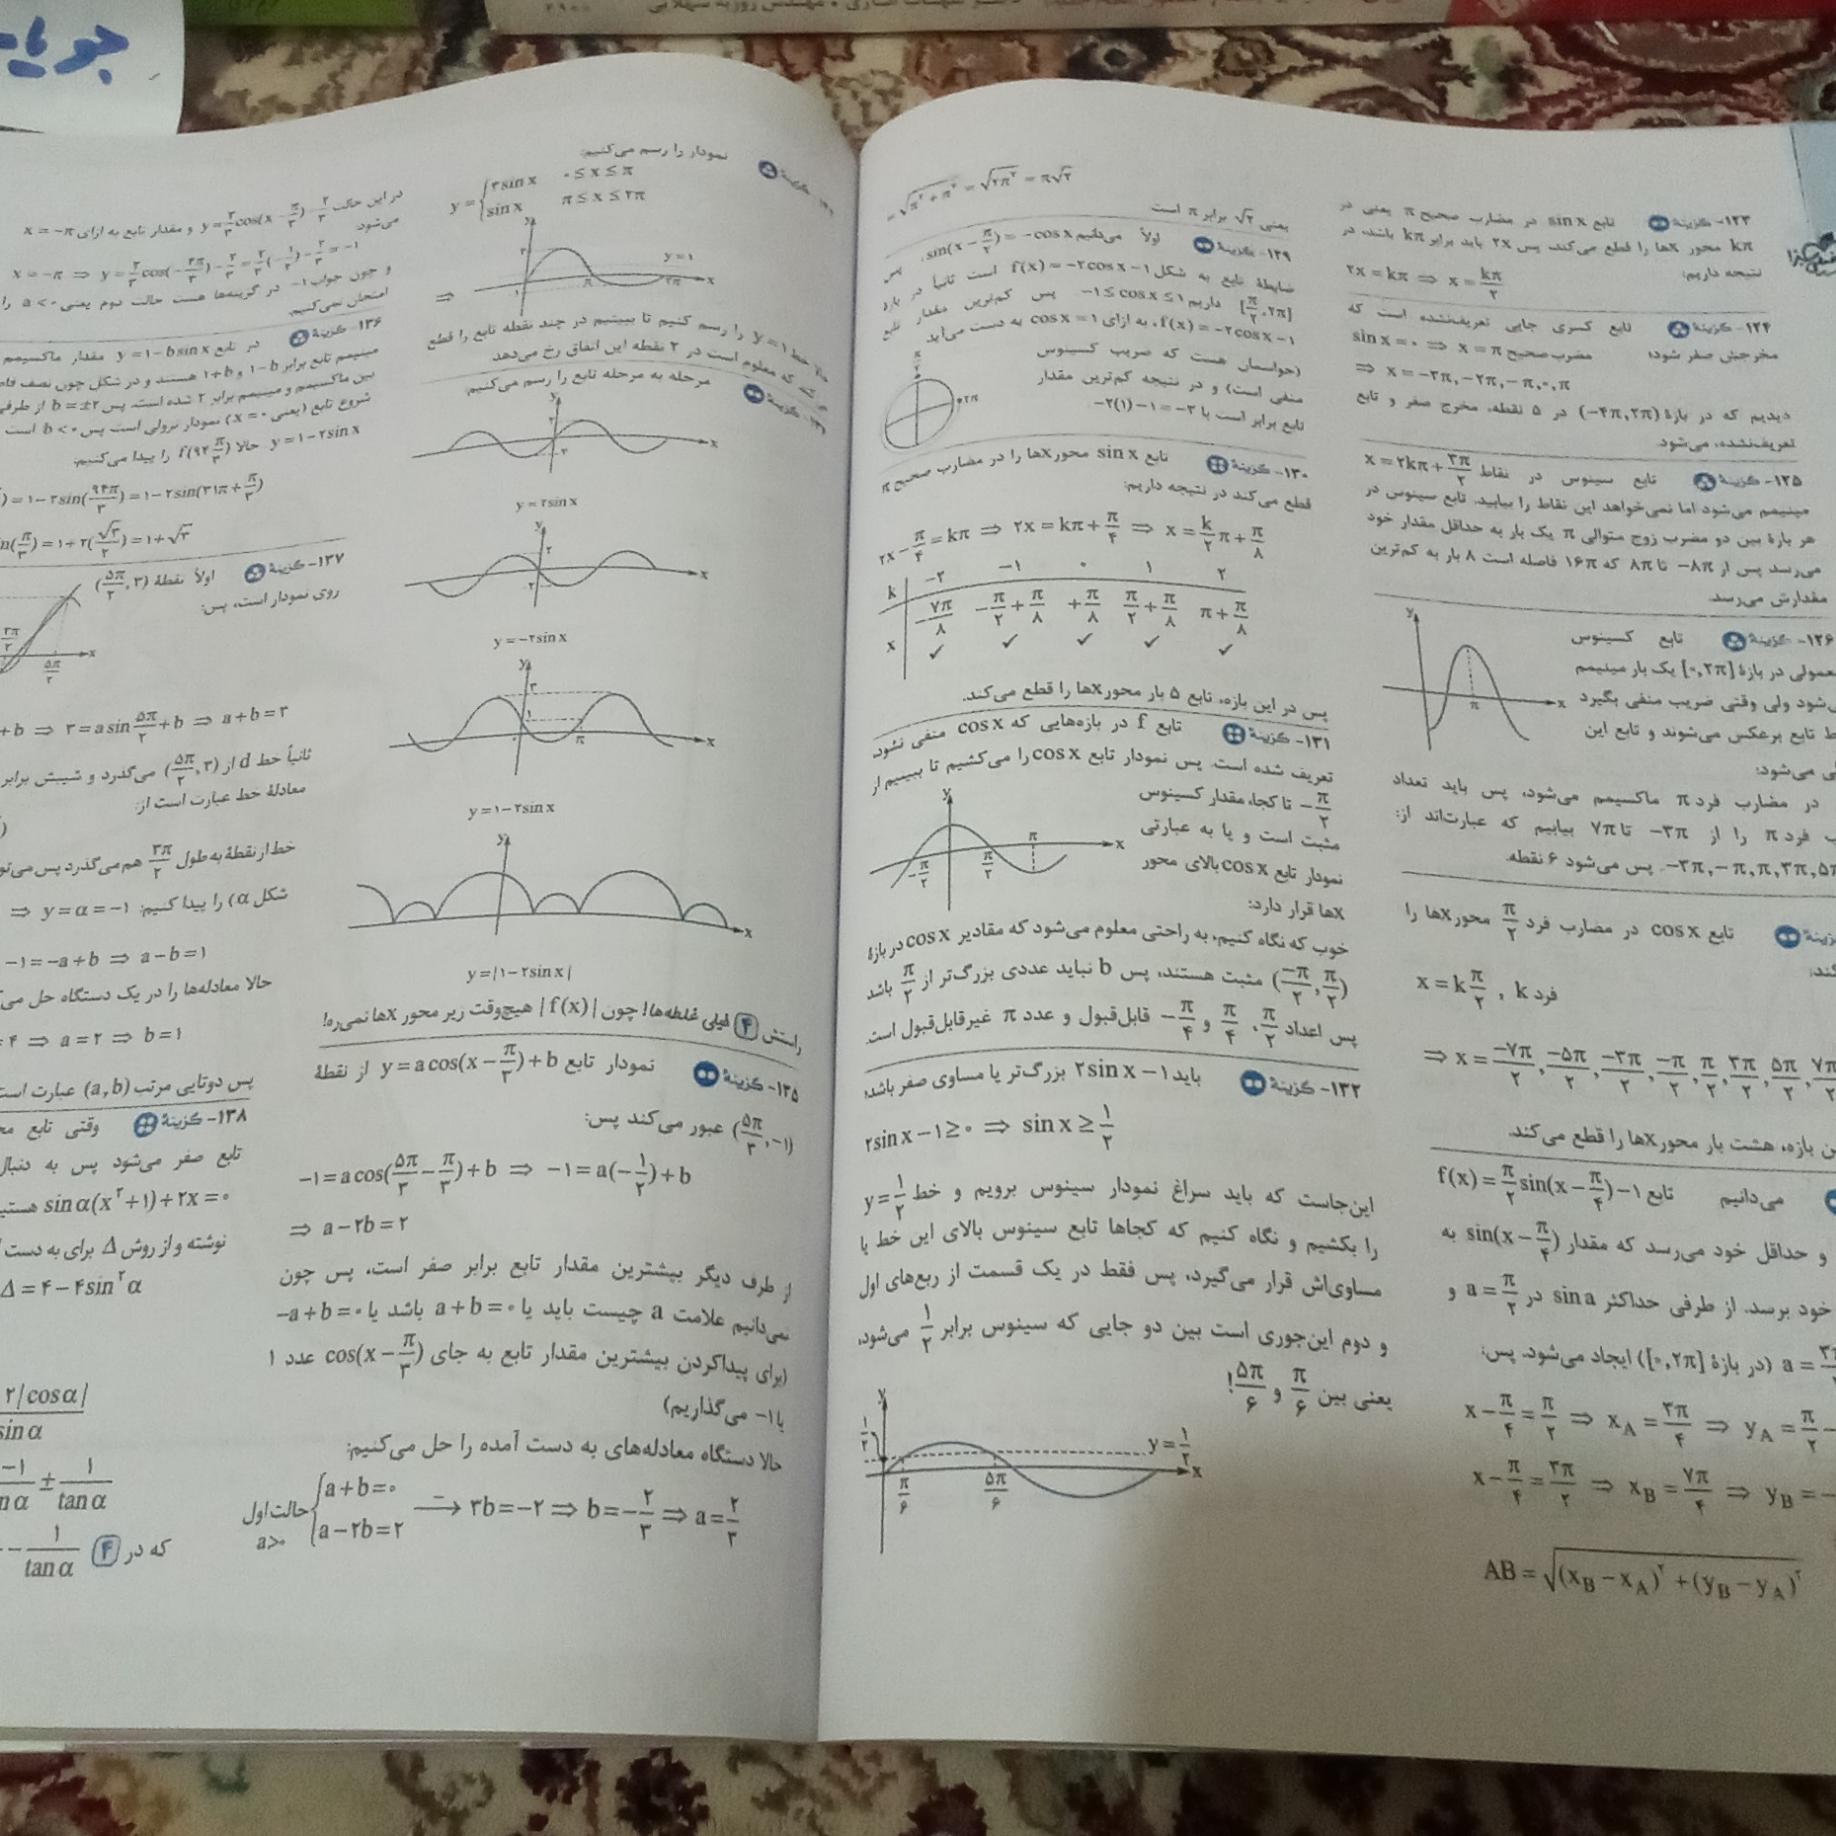 ۱۲۳- گزینهٔ تابع sin x در مضارب صحیح π یعنی در
kπ محور xها را قطع می‌کند، پس ۲x باید برابر kπ باشد، در
نتیجه داریم:
۲x = kπ ⇒ x = kπ/۲
۱۲۴- گزینهٔ تابع کسری جایی تعریف‌نشده است که
مخرجش صفر شود: sin x = ۰ ⇒ x = π مضرب صحیح
⇒ x = -۳π, -۲π, -π, ۰, π
دیدیم که در بازهٔ (-۴π, ۲π) در ۵ نقطه، مخرج صفر و تابع
تعریف‌نشده، می‌شود.
۱۲۵- گزینهٔ تابع سینوس در نقاط x = ۲kπ + ۳π/۲
مینیمم می‌شود اما نمی‌خواهد این نقاط را بیابید. تابع سینوس در
هر بازهٔ بین دو مضرب زوج متوالی π یک بار به حداقل مقدار خود
می‌رسد پس از -۸π تا ۸π که ۱۶π فاصله است ۸ بار به کم‌ترین
مقدارش می‌رسد.
۱۲۶- گزینهٔ تابع کسینوس
معمولی در بازهٔ [۰, ۲π] یک بار مینیمم
می‌شود ولی وقتی ضریب منفی بگیرد
تابع برعکس می‌شوند و تابع این
می‌شود:
y
π
x
در مضارب فرد π ماکسیمم می‌شود، پس باید تعداد
فرد π را از -۳π تا ۷π بیابیم که عبارت‌اند از:
-۳π, -π, π, ۳π, ۵π پس می‌شود ۶ نقطه.
تابع cos x در مضارب فرد π/۲ محور xها را
x = kπ/۲ , k فرد
⇒ x = -۷π/۲, -۵π/۲, -۳π/۲, -π/۲, π/۲, ۳π/۲, ۵π/۲, ۷π/۲
بازه، هشت بار محور xها را قطع می‌کند.
می‌دانیم تابع f(x) = π/۲ sin(x - π/۴) - ۱
و حداقل خود می‌رسد که مقدار sin(x - π/۴) به
خود برسد. از طرفی حداکثر sin a در a = π/۲ و
(در بازهٔ [۰, ۲π]) ایجاد می‌شود. پس:
x - π/۴ = π/۲ ⇒ x_A = ۳π/۴ ⇒ y_A = π/۲ -
x - π/۴ = ۳π/۲ ⇒ x_B = ۷π/۴ ⇒ y_B = -
AB = √((x_B - x_A)² + (y_B - y_A)²)
= √(π² + π²) = √(۲π²) = π√۲
یعنی √۲ برابر π است
۱۲۹- گزینهٔ اولاً می‌دانیم sin(x - π/۲) = -cos x، پس
ضابطهٔ تابع به شکل f(x) = -۲cos x - ۱ است ثانیاً در بازهٔ
[π/۲, ۲π] داریم -۱ ≤ cos x ≤ ۱ پس کم‌ترین مقدار تابع
f(x) = -۲cos x - ۱، به ازای cos x = ۱ به دست می‌آید
(حواستان هست که ضریب کسینوس
منفی است) و در نتیجه کم‌ترین مقدار
تابع برابر است با -۲(۱) - ۱ = -۳
π/۲
۲π
۱۳۰- گزینهٔ تابع sin x محور xها را در مضارب صحیح π
قطع می‌کند در نتیجه داریم:
۲x - π/۴ = kπ ⇒ ۲x = kπ + π/۴ ⇒ x = k/۲ π + π/۸
k -۲ -۱ ۰ ۱ ۲
x -۷π/۸ -π/۲ + π/۸ +π/۸ π/۲ + π/۸ π + π/۸
✓ ✓ ✓ ✓ ✓
پس در این بازه، تابع ۵ بار محور xها را قطع می‌کند.
۱۳۱- گزینهٔ تابع f در بازه‌هایی که cos x منفی نشود،
تعریف شده است. پس نمودار تابع cos x را می‌کشیم تا ببینیم از
-π/۲ تا کجا، مقدار کسینوس
مثبت است و یا به عبارتی
نمودار تابع cos x بالای محور
xها قرار دارد:
y
-π/۲ π/۲ π x
خوب که نگاه کنیم، به راحتی معلوم می‌شود که مقادیر cos x در بازهٔ
(-π/۲, π/۲) مثبت هستند، پس b نباید عددی بزرگ‌تر از π/۲ باشد
پس اعداد π/۲، π/۴ و -π/۴ قابل‌قبول و عدد π غیرقابل‌قبول است.
۱۳۲- گزینهٔ باید ۲sin x - ۱ بزرگ‌تر یا مساوی صفر باشد،
۲sin x - ۱ ≥ ۰ ⇒ sin x ≥ ۱/۲
این‌جاست که باید سراغ نمودار سینوس برویم و خط y = ۱/۲
را بکشیم و نگاه کنیم که کجاها تابع سینوس بالای این خط یا
مساوی‌اش قرار می‌گیرد، پس فقط در یک قسمت از ربع‌های اول
و دوم این‌جوری است بین دو جایی که سینوس برابر ۱/۲ می‌شود،
یعنی بین π/۶ و ۵π/۶!
y
۱/۲
y = ۱/۲
π/۶ ۵π/۶ x
گزینهٔ نمودار را رسم می‌کنیم:
y = { ۲sin x ۰ ≤ x ≤ π
sin x π ≤ x ≤ ۲π
⇒
y
۲
y = ۱
π ۲π x
-۱
حالا خط y = ۱ را رسم کنیم تا ببینیم در چند نقطه تابع را قطع
که معلوم است در ۲ نقطه این اتفاق رخ می‌دهد
گزینهٔ مرحله به مرحله تابع را رسم می‌کنیم.
y
-۲
x
y = ۲sin x
y
۲
-۲
x
y = -۲sin x
y
۳
۱
π x
y = ۱ - ۲sin x
y
x
y = |۱ - ۲sin x|
راستش ۴ خیلی غلطه‌ها! چون |f(x)| هیچ‌وقت زیر محور xها نمی‌ره!
۱۳۵- گزینهٔ نمودار تابع y = a cos(x - π/۳) + b از نقطهٔ
(۵π/۳, -۱) عبور می‌کند پس:
-۱ = a cos(۵π/۳ - π/۳) + b ⇒ -۱ = a(-۱/۲) + b
⇒ a - ۲b = ۲
از طرف دیگر بیشترین مقدار تابع برابر صفر است، پس چون
نمی‌دانیم علامت a چیست باید یا a + b = ۰ باشد یا -a + b = ۰
(برای پیداکردن بیشترین مقدار تابع به جای cos(x - π/۳) عدد ۱
یا -۱ می‌گذاریم)
حالا دستگاه معادله‌های به دست آمده را حل می‌کنیم:
حالت اول a>۰ { a + b = ۰
a - ۲b = ۲ → ۳b = -۲ ⇒ b = -۲/۳ ⇒ a = ۲/۳
در این حالت y = ۲/۳ cos(x - π/۳) - ۲/۳ و مقدار تابع به ازای x = -π
می‌شود:
x = -π ⇒ y = ۲/۳ cos(-۴π/۳) - ۲/۳ = ۲/۳(-۱/۲) - ۲/۳ = -۱
و چون جواب -۱ در گزینه‌ها هست حالت دوم یعنی a < ۰ را
امتحان نمی‌کنیم.
۱۳۶- گزینهٔ در تابع y = ۱ - b sin x مقدار ماکسیمم
مینیمم تابع برابر ۱ - b و ۱ + b هستند و در شکل چون نصف
بین ماکسیمم و مینیمم برابر ۲ شده است. پس b = ±۲ از طرفی
شروع تابع (یعنی x = ۰) نمودار نزولی است پس b < ۰ است
y = ۱ - ۲sin x حالا f(۹۴π/۳) را پیدا می‌کنیم:
) = ۱ - ۲sin(۹۴π/۳) = ۱ - ۲sin(۳۱π + π/۳)
in(π/۳) = ۱ + ۲(√۳/۲) = ۱ + √۳
۱۳۷- گزینهٔ اولاً نقطهٔ (۵π/۲, ۳)
روی نمودار است، پس:
۳π/۲ ۵π/۲ x
+ b ⇒ ۳ = a sin ۵π/۲ + b ⇒ a + b = ۳
ثانیاً خط d از (۵π/۲, ۳) می‌گذرد و شیبش برابر
معادلهٔ خط عبارت است از:
خط از نقطهٔ به طول ۳π/۲ هم می‌گذرد پس
شکل α) را پیدا کنیم: y = α = -۱ ⇒
-۱ = -a + b ⇒ a - b = ۱
حالا معادله‌ها را در یک دستگاه حل
= ۴ ⇒ a = ۲ ⇒ b = ۱
پس دوتایی مرتب (a, b) عبارت است
۱۳۸- گزینهٔ وقتی تابع
تابع صفر می‌شود پس به دنبال
sin α(x² + ۱) + ۲x = ۰
نوشته و از روش Δ برای به دست
Δ = ۴ - ۴sin² α
۲|cos α|
sin α
-۱ ± ۱/tan α
-۱/tan α که در ۴